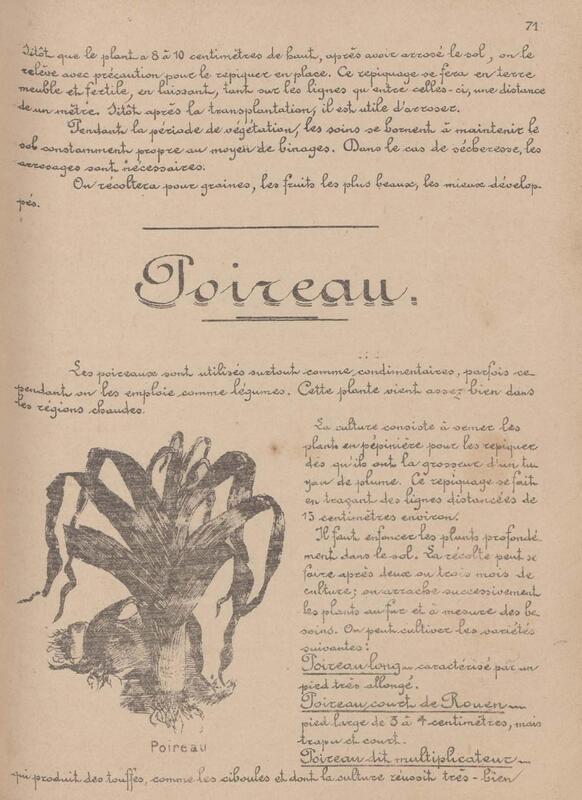 71
Sitôt que le plant a 8 à 10 centimètres de haut, après avoir arrosé le sol, on le
relève avec précaution pour le repiquer en place. Ce repiquage se fera en terre
meuble et fertile, en laissant, tant sur les lignes qu'entre celles-ci, une distance
de un mètre. Sitôt après la transplantation, il est utile d'arroser.
Pendant la période de végétation, les soins se bornent à maintenir le
sol constamment propre au moyen de binages. Dans le cas de sécheresse, les
arrosages sont nécessaires.
On récoltera pour graines, les fruits les plus beaux, les mieux dévelop-
pés.
Poireau.
Les poireaux sont utilisés surtout comme condimentaires, parfois ce-
pendant on les emploie comme légumes. Cette plante vient assez bien dans
les régions chaudes.
La culture consiste à semer les
plants en pépinière pour les repiquer
dès qu'ils ont la grosseur d'un tu
yau de plume. Ce repiquage se fait
en traçant des lignes distancées de
15 centimètres environ.
Il faut enfoncer les plants profondé
ment dans le sol. La récolte peut se
faire après deux ou trois mois de
culture; on arrache successivement
les plants au fur et à mesure des be
soins. On peut cultiver les variétés
suivantes:
Poireau long _ caractérisé par un
pied très allongé.
Poireau court de Rouen _
pied large de 3 à 4 centimètres, mais
trapu et court.
Poireau dit multiplicateur _
Poireau
qui produit des touffes, comme les ciboules et dont la culture réussit très-bien